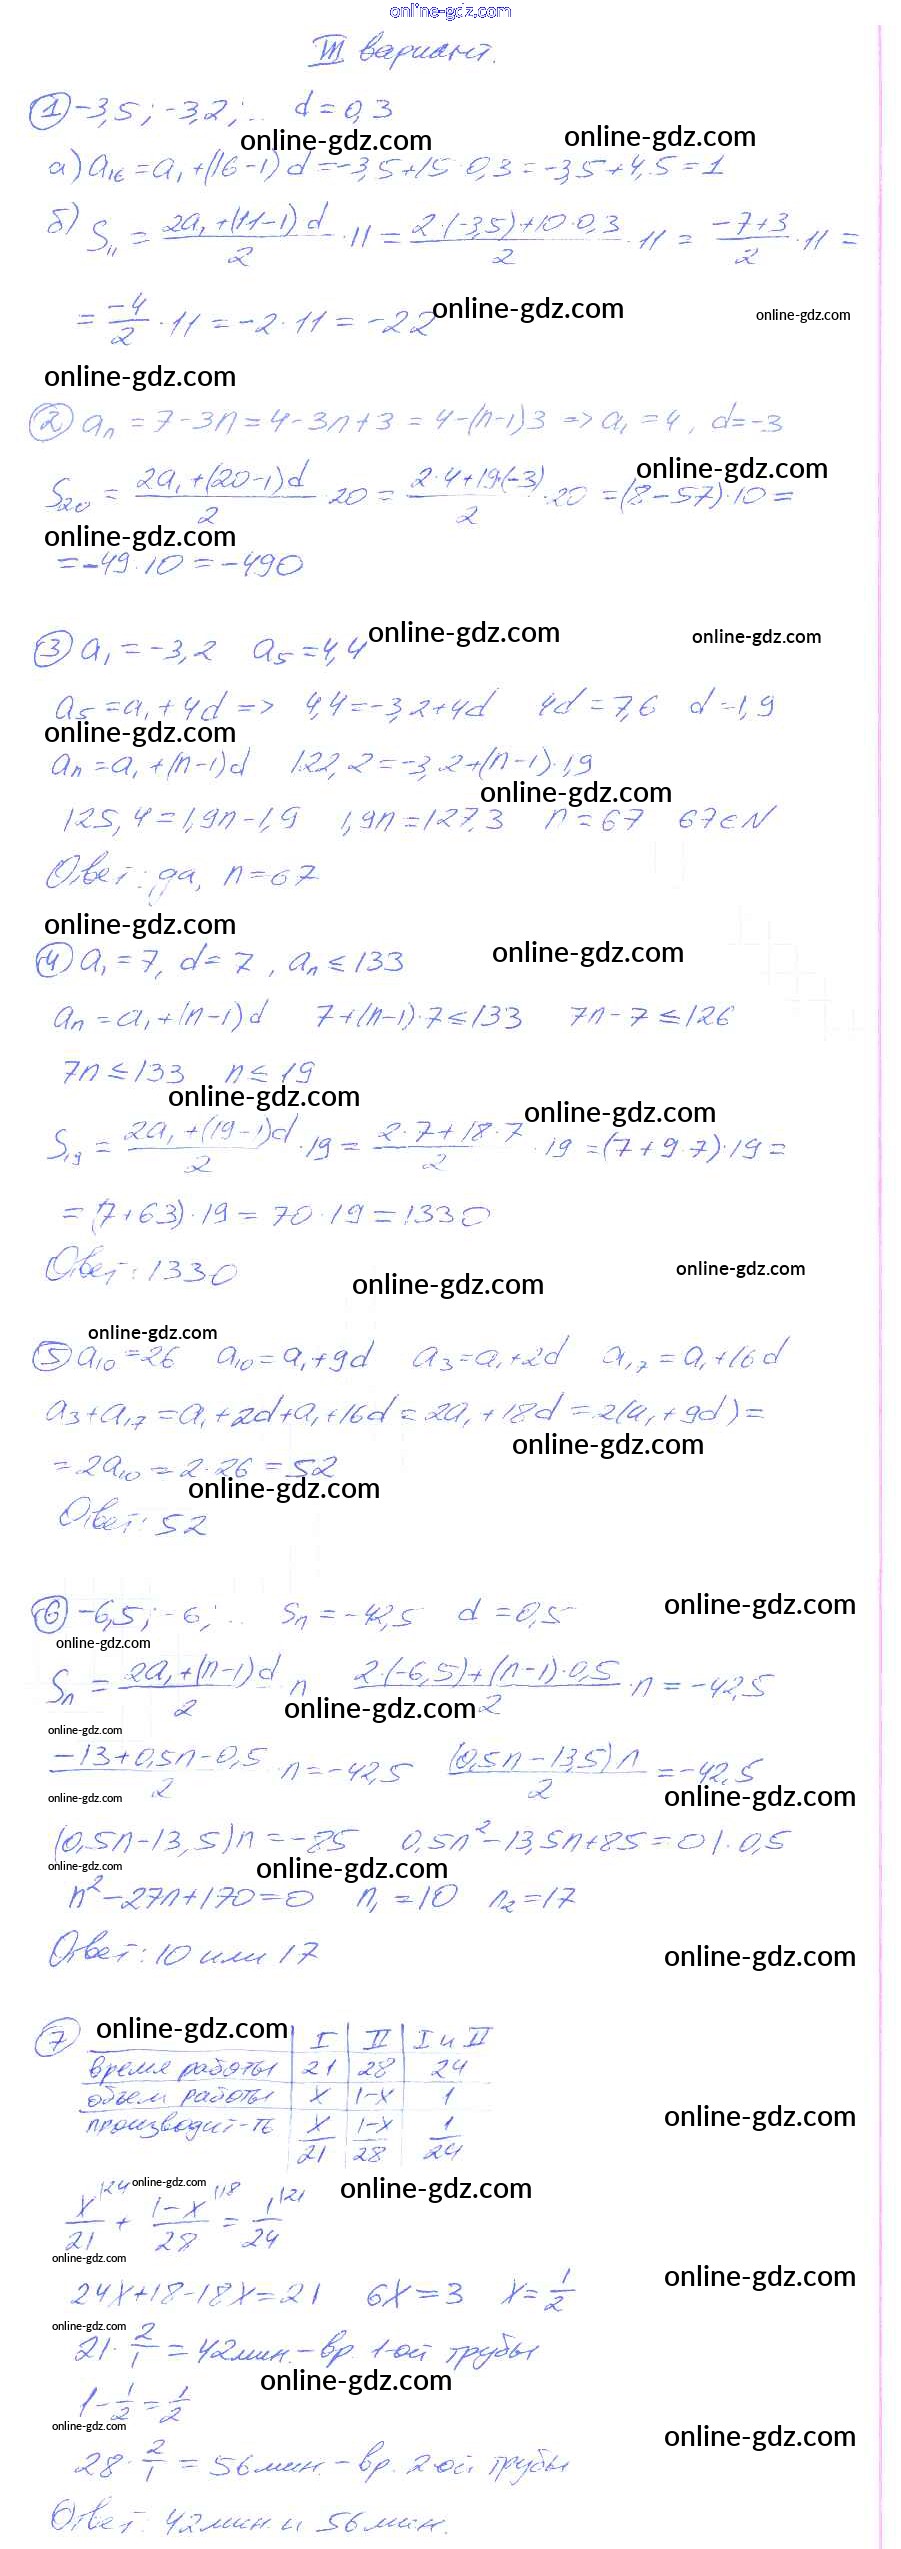 online-gdz.com
III вариант.
① -3,5; -3,2; .. d = 0,3
online-gdz.com online-gdz.com
а) a₁₆ = a₁ + (16-1) d = -3,5 + 15 · 0,3 = -3,5 + 4,5 = 1
б) S₁₁ = (2a₁ + (11-1) d)/2 · 11 = (2·(-3,5) + 10·0,3)/2 · 11 = (-7+3)/2 · 11 =
= -4/2 · 11 = -2 · 11 = -22
online-gdz.com online-gdz.com
online-gdz.com
② aₙ = 7 - 3n = 4 - 3n + 3 = 4 - (n-1)3 => a₁ = 4, d = -3
online-gdz.com
S₂₀ = (2a₁ + (20-1) d)/2 · 20 = (2·4 + 19·(-3))/2 · 20 = (8 - 57) · 10 =
online-gdz.com
= -49 · 10 = -490
③ a₁ = -3,2 a₅ = 4,4
online-gdz.com online-gdz.com
a₅ = a₁ + 4d => 4,4 = -3,2 + 4d 4d = 7,6 d = 1,9
online-gdz.com
aₙ = a₁ + (n-1) d 122,2 = -3,2 + (n-1) · 1,9
online-gdz.com
125,4 = 1,9n - 1,9 1,9n = 127,3 n = 67 67 ∈ N
Ответ: да, n = 67
online-gdz.com
④ a₁ = 7, d = 7, aₙ ≤ 133
online-gdz.com
aₙ = a₁ + (n-1) d 7 + (n-1) · 7 ≤ 133 7n - 7 ≤ 126
7n ≤ 133 n ≤ 19
online-gdz.com online-gdz.com
S₁₉ = (2a₁ + (19-1) d)/2 · 19 = (2·7 + 18·7)/2 · 19 = (7 + 9·7) · 19 =
= (7 + 63) · 19 = 70 · 19 = 1330
Ответ: 1330
online-gdz.com online-gdz.com
online-gdz.com
⑤ a₁₀ = 26 a₁₀ = a₁ + 9d a₃ = a₁ + 2d a₁₇ = a₁ + 16d
a₃ + a₁₇ = a₁ + 2d + a₁ + 16d = 2a₁ + 18d = 2(a₁ + 9d) =
online-gdz.com
= 2a₁₀ = 2 · 26 = 52
online-gdz.com
Ответ: 52
⑥ -6,5; -6; .. Sₙ = -42,5 d = 0,5
online-gdz.com
online-gdz.com
Sₙ = (2a₁ + (n-1) d)/2 n (2·(-6,5) + (n-1) · 0,5)/2 · n = -42,5
online-gdz.com
online-gdz.com
(-13 + 0,5n - 0,5)/2 · n = -42,5 ((0,5n - 13,5) n)/2 = -42,5
online-gdz.com online-gdz.com
(0,5n - 13,5) n = -85 0,5n² - 13,5n + 85 = 0 | · 0,5
online-gdz.com online-gdz.com
n² - 27n + 170 = 0 n₁ = 10 n₂ = 17
Ответ: 10 или 17
online-gdz.com
⑦ online-gdz.com I II I и II
время работы 21 28 24
объем работы x 1-x 1
производит-ть x/21 (1-x)/28 1/24
online-gdz.com
online-gdz.com online-gdz.com
x/21 |24 + (1-x)/28 |18 = 1/24 |21
online-gdz.com online-gdz.com
24x + 18 - 18x = 21 6x = 3 x = 1/2
online-gdz.com
21 · 2/1 = 42 мин. - вр. 1-ой трубы
online-gdz.com
1 - 1/2 = 1/2
online-gdz.com online-gdz.com
28 · 2/1 = 56 мин. - вр. 2-ой трубы
Ответ: 42 мин. и 56 мин.